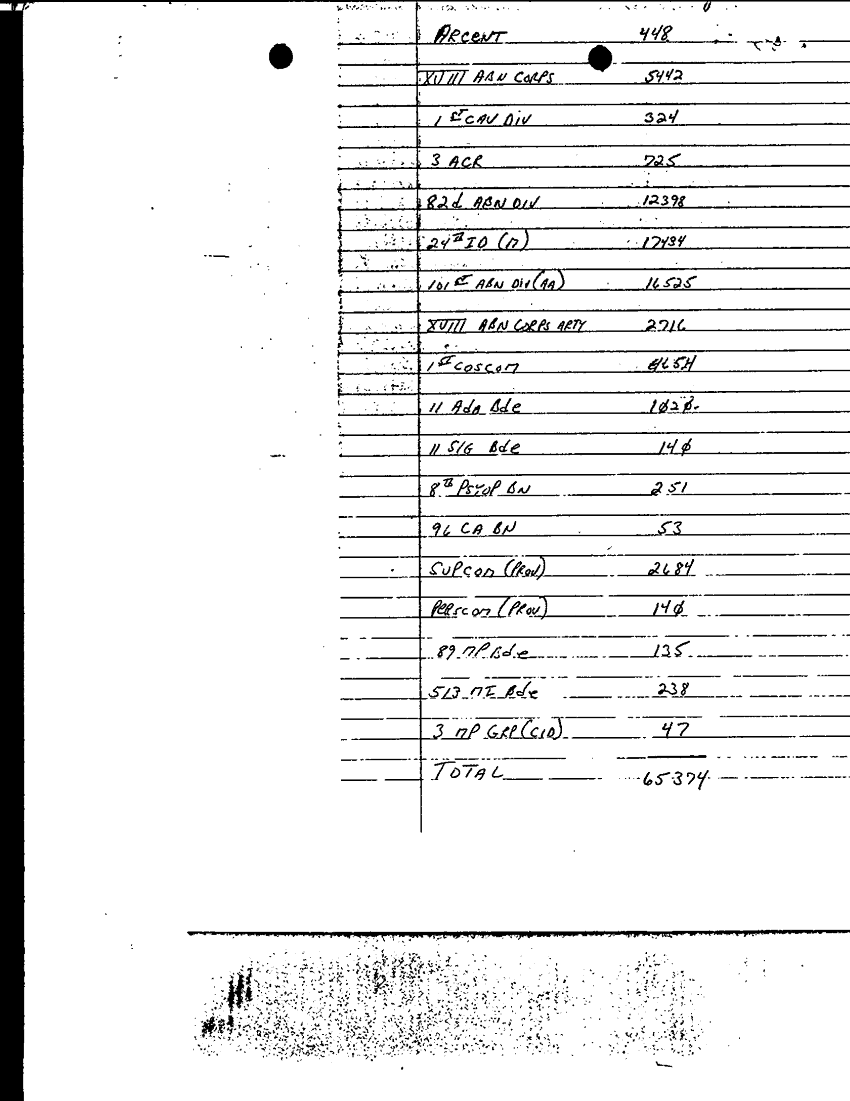 ARCENT 448
XVIII ABN CORPS 5442
1ST CAV DIV 324
3 ACR 725
82d ABN DIV 12398
24TH ID (M) 17434
101ST ABN DIV (AA) 16525
XVIII ABN CORPS ARTY 2716
1ST COSCOM 4654
11 ADA Bde 1020
11 SIG Bde 140
8TH PSYOP BN 251
96 CA BN 53
SUPCOM (PROV) 2684
PERSCOM (PROV) 140
89 MP Bde 135
513 MI Bde 238
3 MP GRP (CID) 47
TOTAL 65374